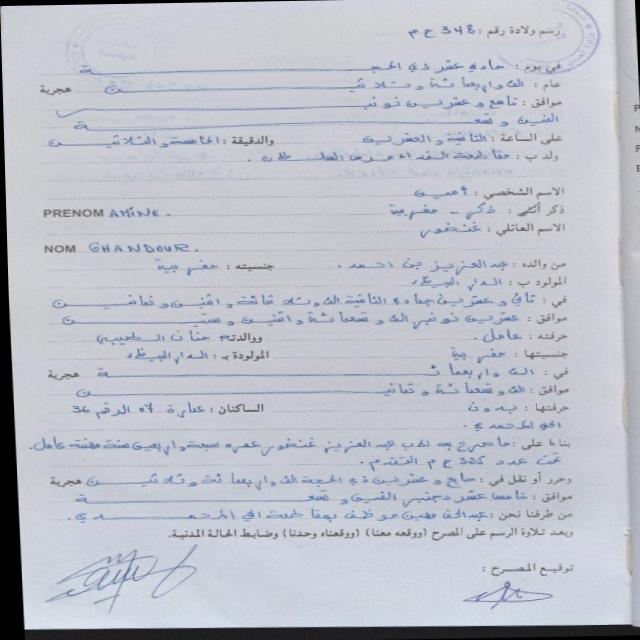 رسم ولادة رقم : 348 ح م
في يوم : حادي عشر ذي الحجة
عام : الف واربعمائة وثلاثين هجرية
موافق : تاسع وعشرين نونبر
الفين وتسعة
على الساعة : الثانية والعشرين والدقيقة : الخامسة والثلاثين
ولد ب :
الاسم الشخصي : أمين
PRENOM AMINE.
ذكر أنثى : ذكر - مغربية
الاسم العائلي : غندور
NOM GHANDOUR.
من والده : عبد العزيز بن احمد . جنسيته : مغربية
المولود ب : الدار البيضاء
في : ثاني وعشرين جمادي الثانية الف وثلاثمائة واثنين وثمانين
موافق : عشرين نونبر الف وتسعمائة واثنين وستين
حرفته : عامل . ووالدته حنان
جنسيتها : مغربية المولودة ب : الدار البيضاء
في : الف واربعمائة هجرية
موافق : الف وتسعمائة وثمانين
حرفتها : بدون الساكنان : عمارة لاء الرقم 36
الحي المحمدي .
بناءا على : ما صرح به الاب عبد العزيز غندور عمره سبعة واربعين سنة مهنته عامل .
تحت عدد ح م المتقدم .
وحرر أو نقل في : سابع وعشرين ذي الحجة الف واربعمائة وثلاثين هجرية
موافق : خامس عشر دجنبر الفين وتسعة
من طرفنا نحن : عبد الحق موظف بمقاطعة الحي المحمدي .
وبعد تلاوة الرسم على المصرح (ووقعه معنا) (ووقعناه وحدنا) وضابط الحالة المدنية.
توقيع المصرح :